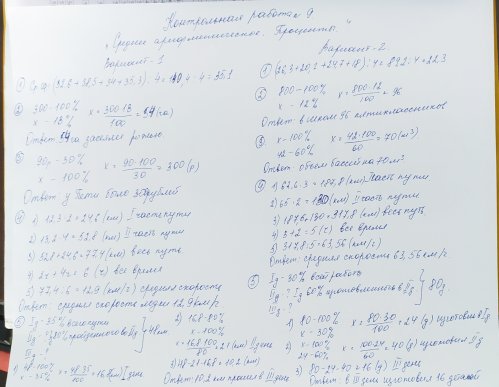 Контрольная работа 9
"Среднее арифметическое. Проценты."
Вариант-1
① Ср.ар. (32,8+38,5+34+35,3):4=140,4:4=35,1
② 300-100% x=300·18/100=54(га)
x-18%
Ответ: 54га засеяли рожью
③ 90р-30% x=90·100/30=300(р)
x-100%
Ответ: у Пети было 300рублей
④ 1) 12,3·2=24,6(км) I часть пути
2) 13,2·4=52,8(км) II часть пути
3) 52,8+24,6=77,4(км) весь путь
4) 2ч+4ч=6(ч) все время
5) 77,4:6=12,9(км/ч) средняя скорость
Ответ: средняя скорость лодки 12,9км/ч
⑤ Iд-35% всего пути
IIд-? 
IIIд-?
48км
1) 48-100%
x-35%
x=48·35/100=16,8(км) I день
2) 16,8-80%
x-100%
x=16,8·100/80=21(км) II день
3) 48-21-16,8=10,2(км)
Ответ: 10,2км прошел в III день
Вариант-2
① (26,3+20,2+24,7+18):4=89,2:4=22,3
② 800-100% x=800·12/100=96
x-12%
Ответ: в школе 96 пятиклассников
③ x-100% x=42·100/60=70(м3)
42-60%
Ответ: объем бассейна 70м3
④ 1) 62,6·3=187,8(км) I часть пути
2) 65·2=130(км) II часть пути
3) 187,8+130=317,8(км) весь путь
4) 3+2=5(ч) все время
5) 317,8:5=63,56(км/ч)
Ответ: средняя скорость 63,56км/ч
⑤ Iд-30% всей работы
IIд-? Iд 60% изготовленного в IIд
IIIд-?
80д.
1) 80-100%
x-30%
x=80·30/100=24(д) изготовил в Iд
2) x-100%
24-60%
x=100·24/60=40(д) изготовил IIд
3) 80-24-40=16(д) III день
Ответ: в III день изготовил 16 деталей